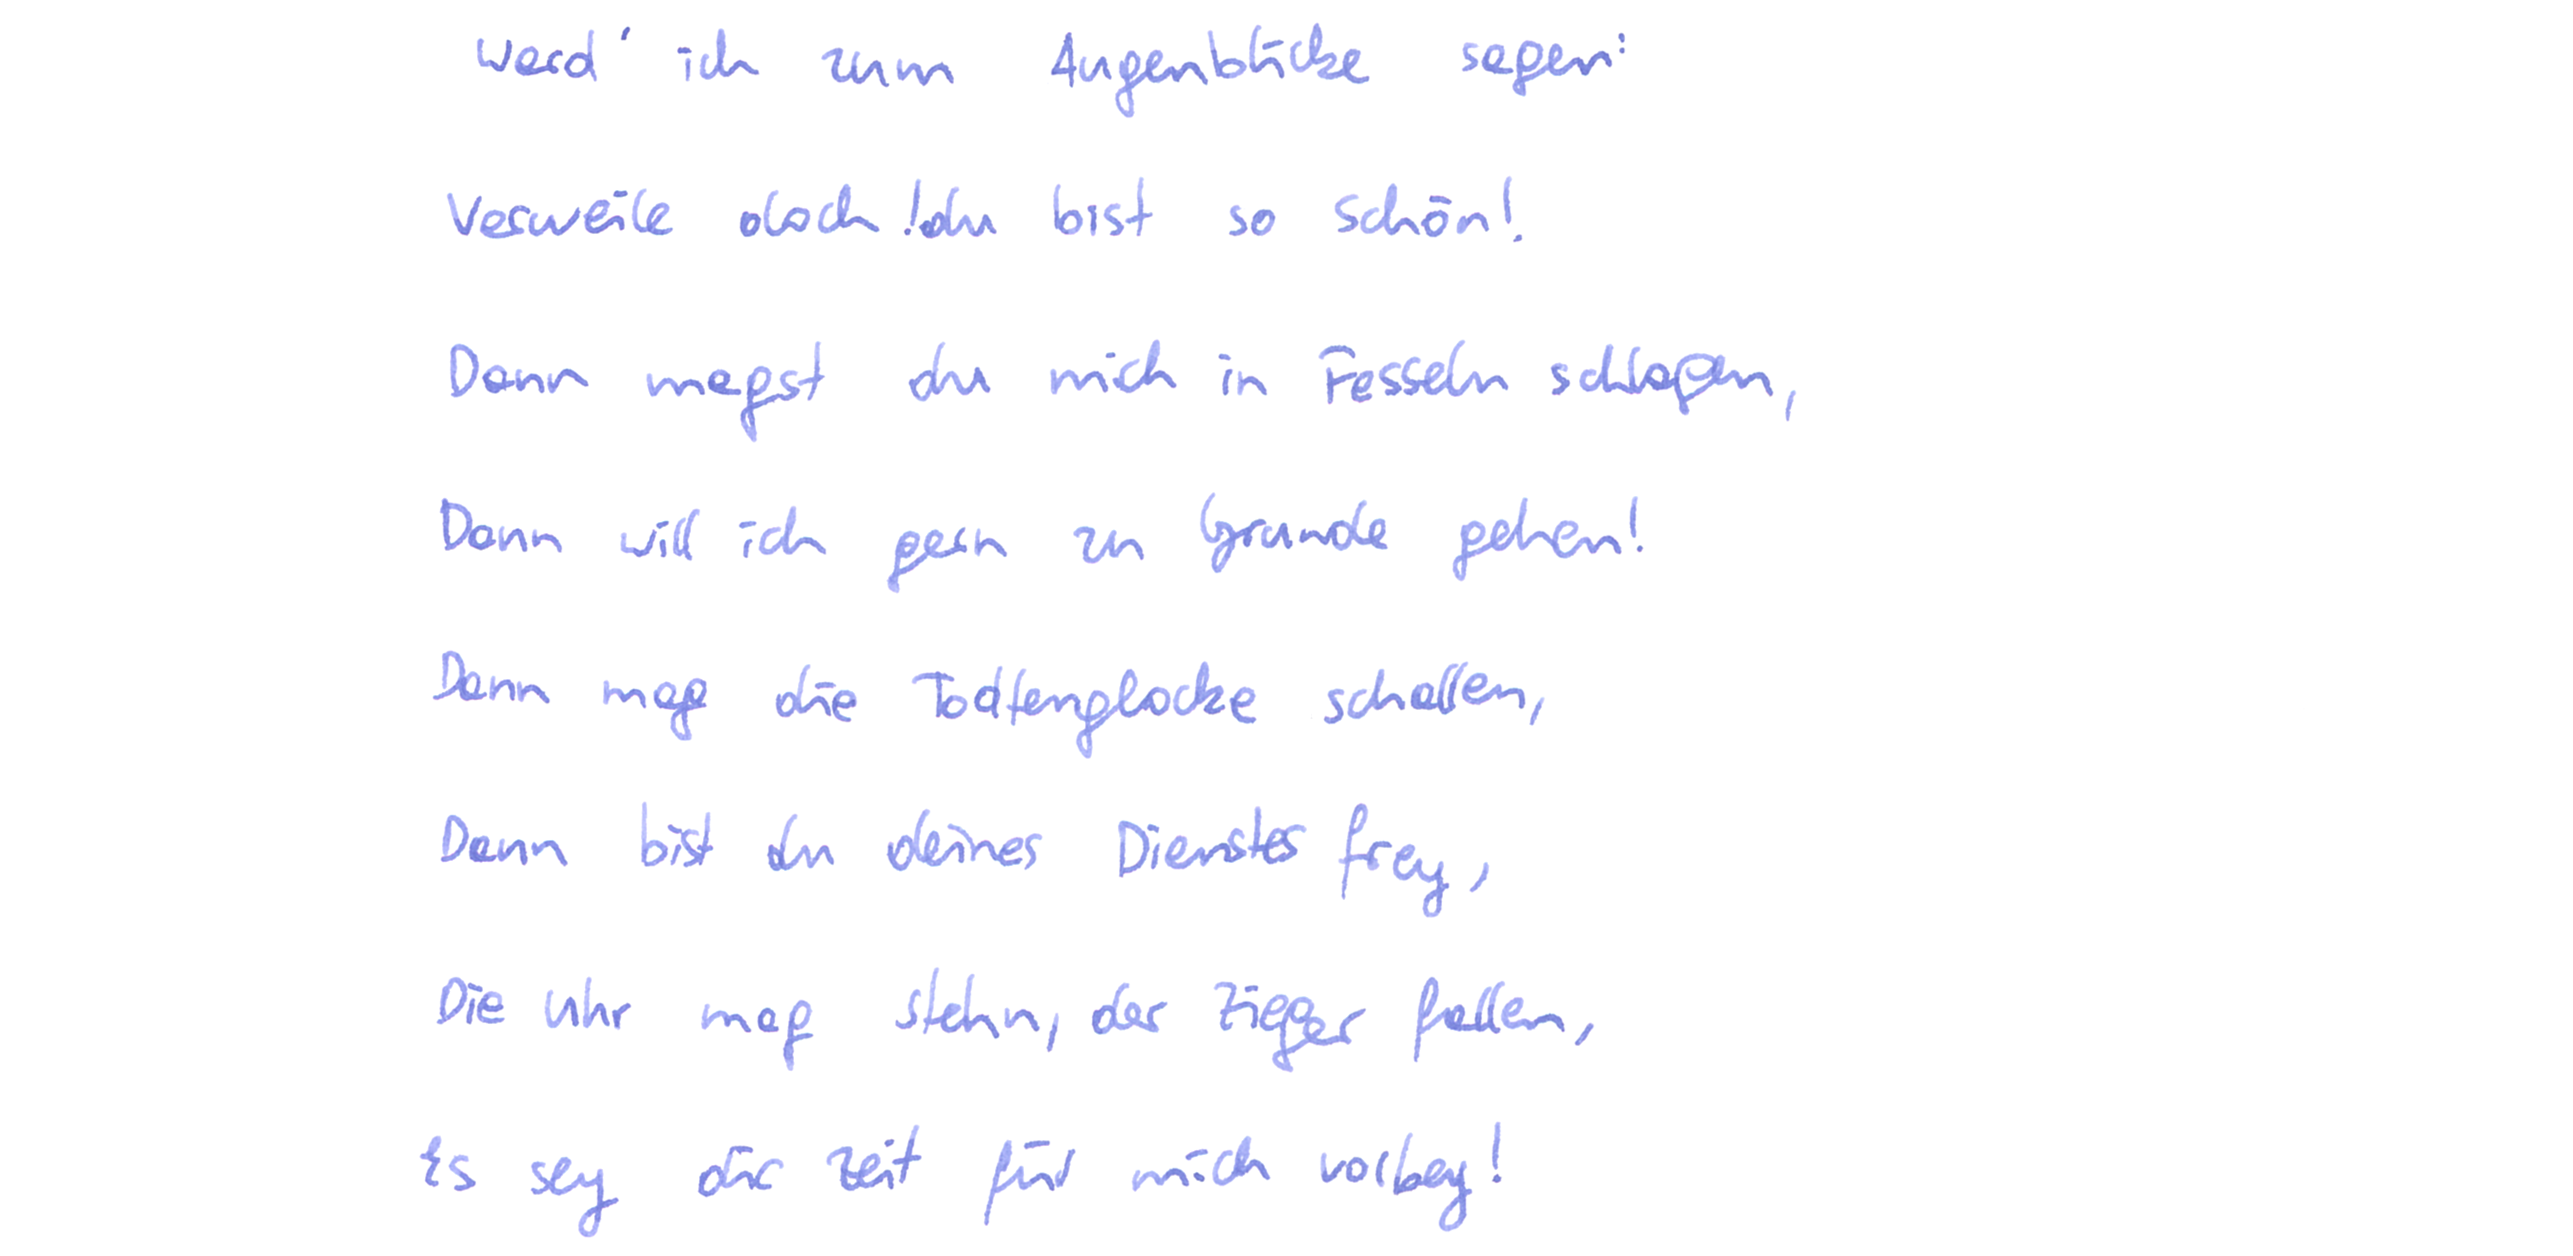 Werd' ich zum Augenblicke sagen:
Verweile doch! du bist so schön!
Dann magst du mich in Fesseln schlagen,
Dann will ich gern zu Grunde gehen!
Dann mag die Todtenglocke schallen,
Dann bist du deines Dienstes frey,
Die Uhr mag stehn, der Zieger fallen,
Es sey die Zeit für mich vorbey!